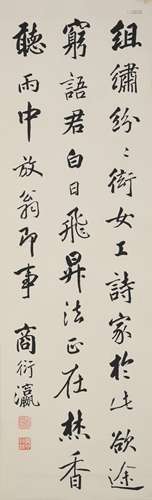 组繡纷〻衒女工詩家於此欲途
窮語君白日飛昇法正在焚香
聽雨中放翁即事 商衍瀛